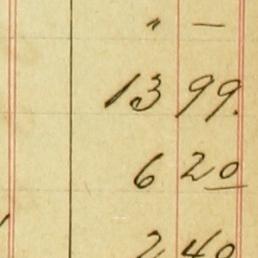 " —
13 99.
6 20
2 40